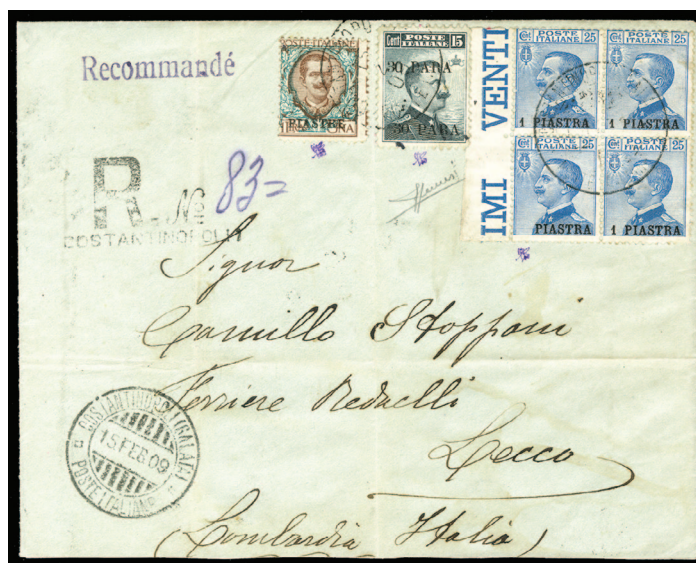 Recommandé
POSTE ITALIANE
PIASTRE
Cent POSTE ITALIANE 15
30 PARA
30 PARA
IMI VENTI
Cent POSTE ITALIANE 25
1 PIASTRA
Cent POSTE ITALIANE 25
1 PIASTRA
Cent POSTE ITALIANE 25
PIASTRA
Cent POSTE ITALIANE 25
1 PIASTRA
R. No 83=
COSTANTINOPOLI
Signor
Camillo Stoppani
Ferriere Redaelli
Lecco
(Lombardia Italia)
COSTANTINOPOLI (GALATA)
15 FEB 09
POSTE ITALIANE